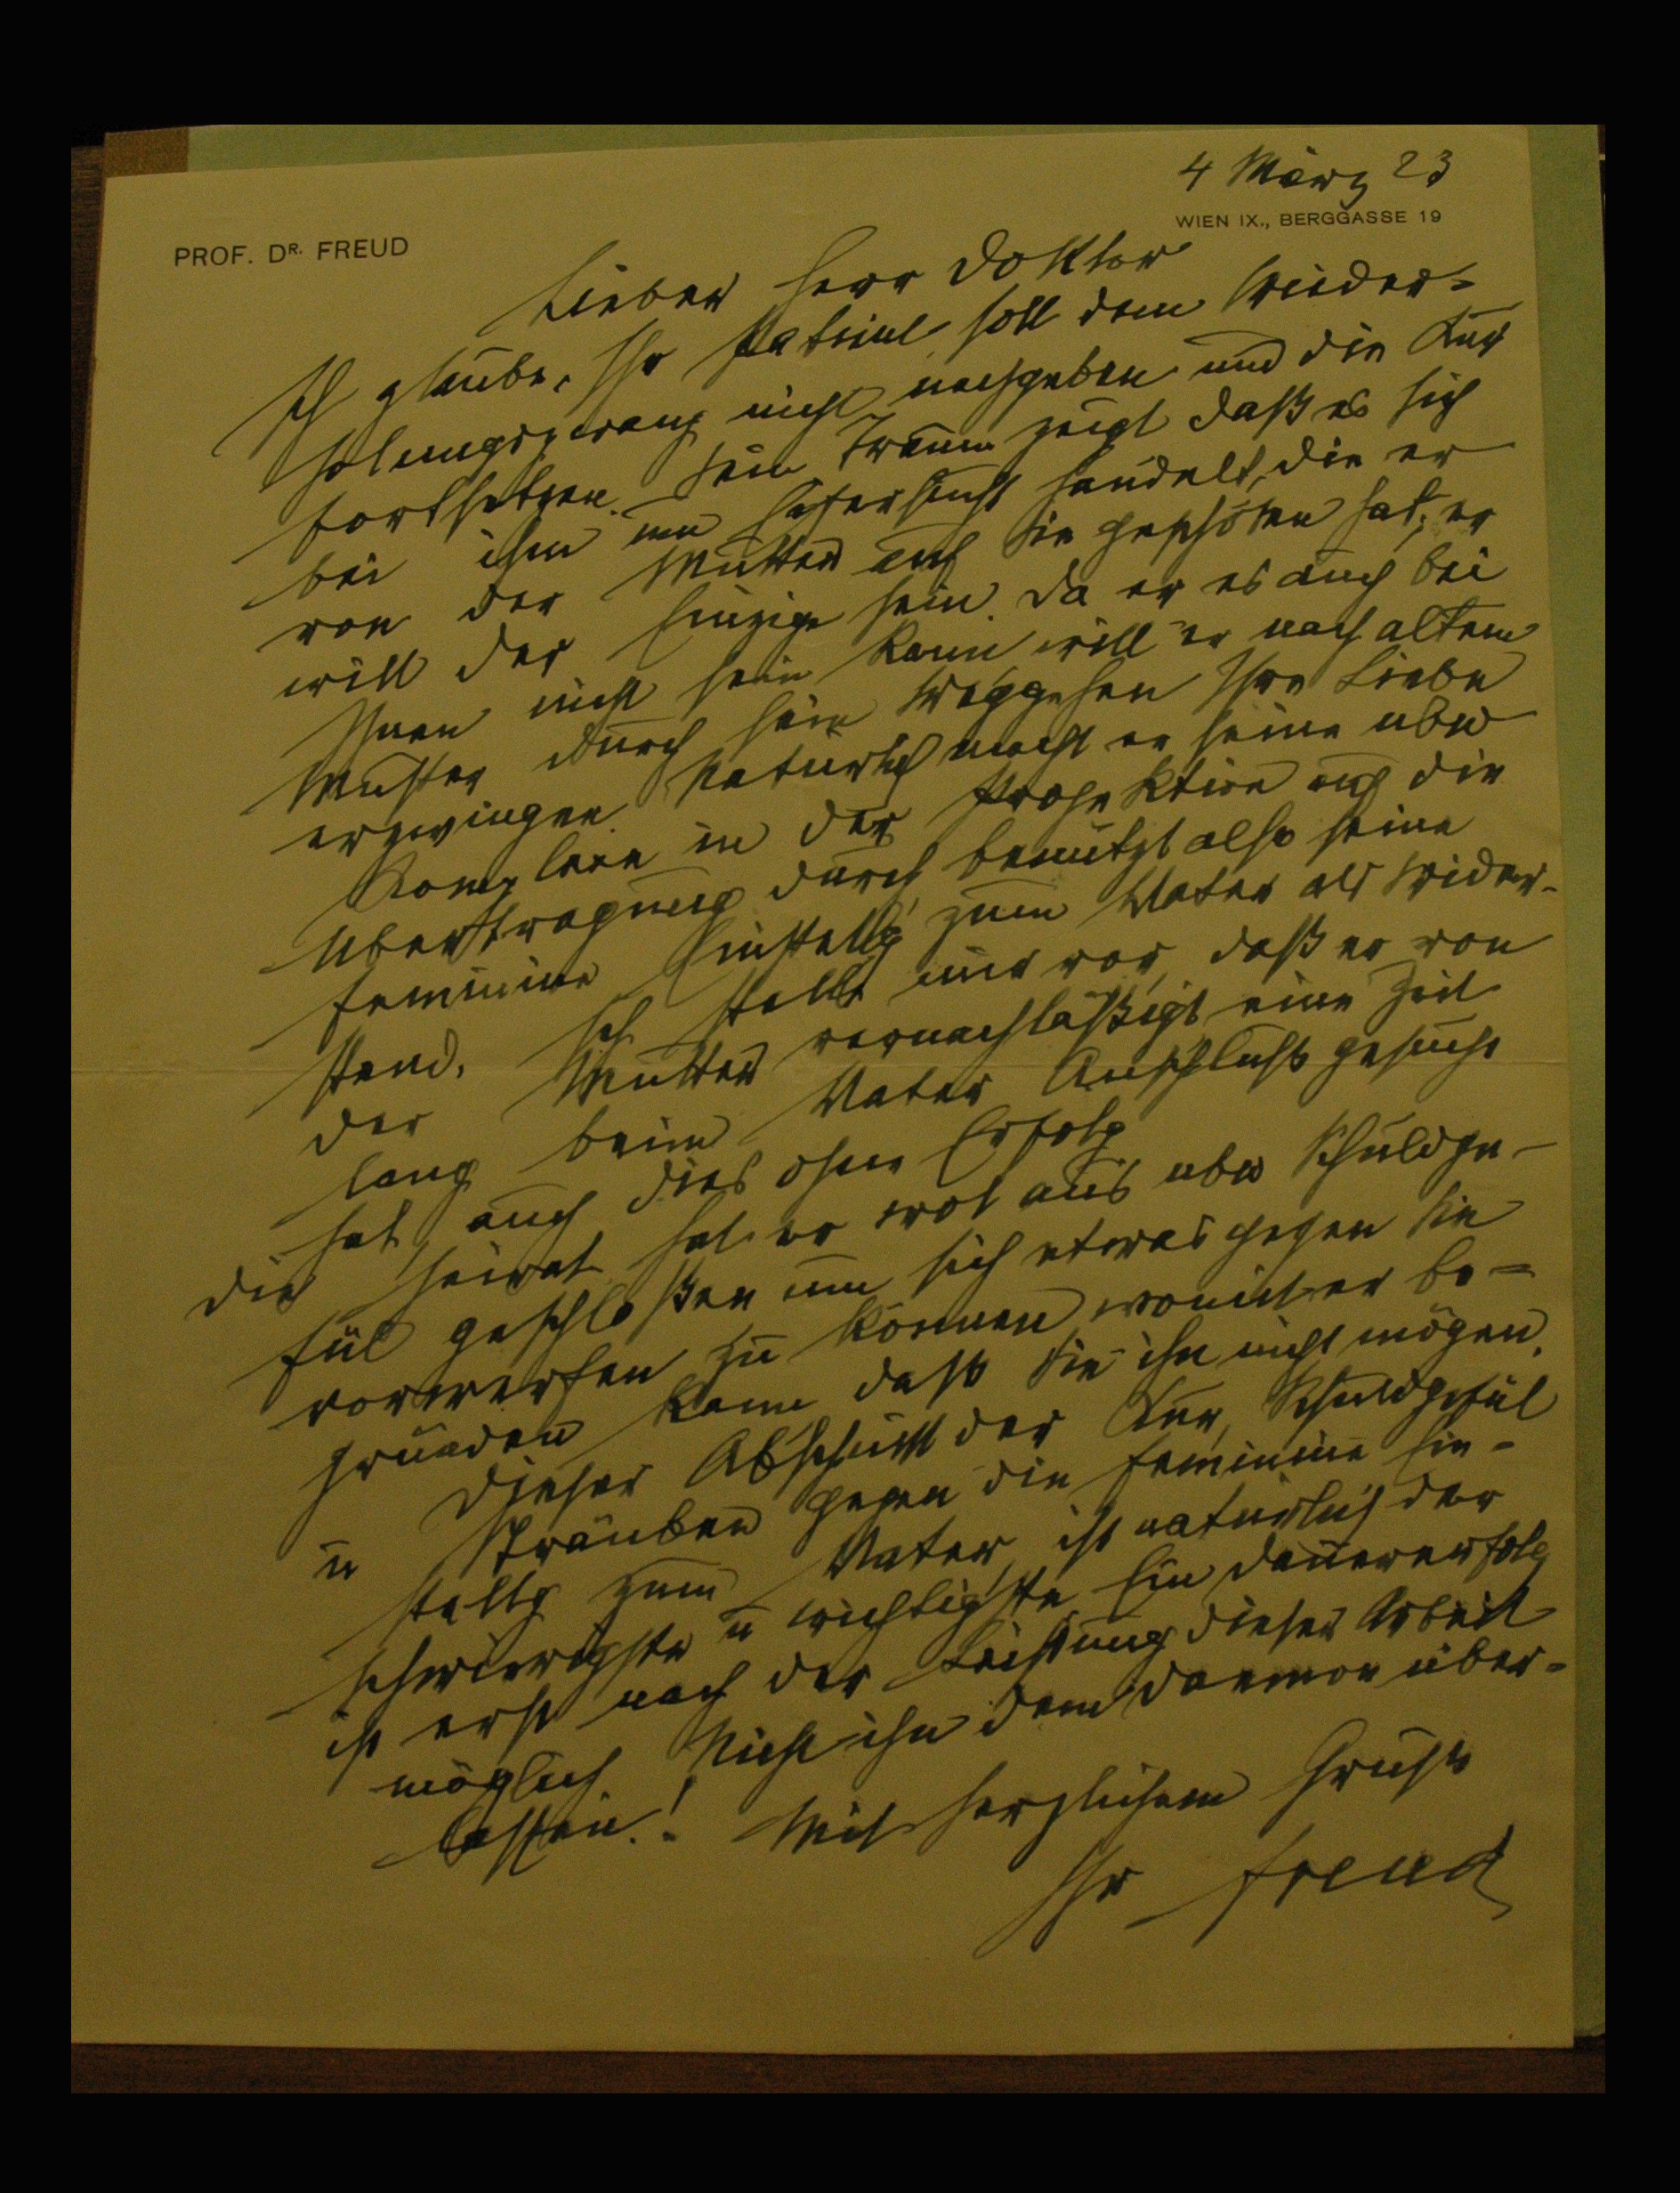 4 März 23
WIEN IX., BERGGASSE 19
PROF. DR. FREUD
Lieber Herr Doktor
Ich glaube, Ihr Patient soll dem Wieder-
holungszwang nicht nachgeben und die Kur
fortsetzen. Sein Traum zeigt daß es sich
bei ihm um Eifersucht handelt, die er
von der Mutter auf Sie geschoben hat, er
will der Einzige sein. Da er es auch bei
Ihnen nicht sein kann, will er nach altem
Muster durch sein Weggehen Ihre Liebe
erzwingen. Natürlich macht er seine ubw
Komplexe in der Projektion auf die
Übertragung durch, benützt also seine
feminine Einstellg zum Vater als Wider-
stand. Ich stelle mir vor, daß er von
der Mutter vernachläßigt eine Zeit
lang beim Vater Anschluß gesucht
hat, auch dies ohne Erfolg
Die Heirat hat er wol aus ubw Schuldge-
fül geschloßen um sich etwas gegen Sie
vorwerfen zu können womit er be-
gründen kann daß Sie ihn nicht mögen.
Dieser Abschnitt der Kur, Schuldgefül
u Sträuben gegen die feminine Ein-
stellg zum Vater, ist natürlich der
schwierigste u wichtigste. Ein Dauererfolg
ist erst nach der Leistung dieser Arbeit
möglich. Nicht ihn dem Daemon über-
lassen.! Mit herzlichem Gruß
Ihr Freud